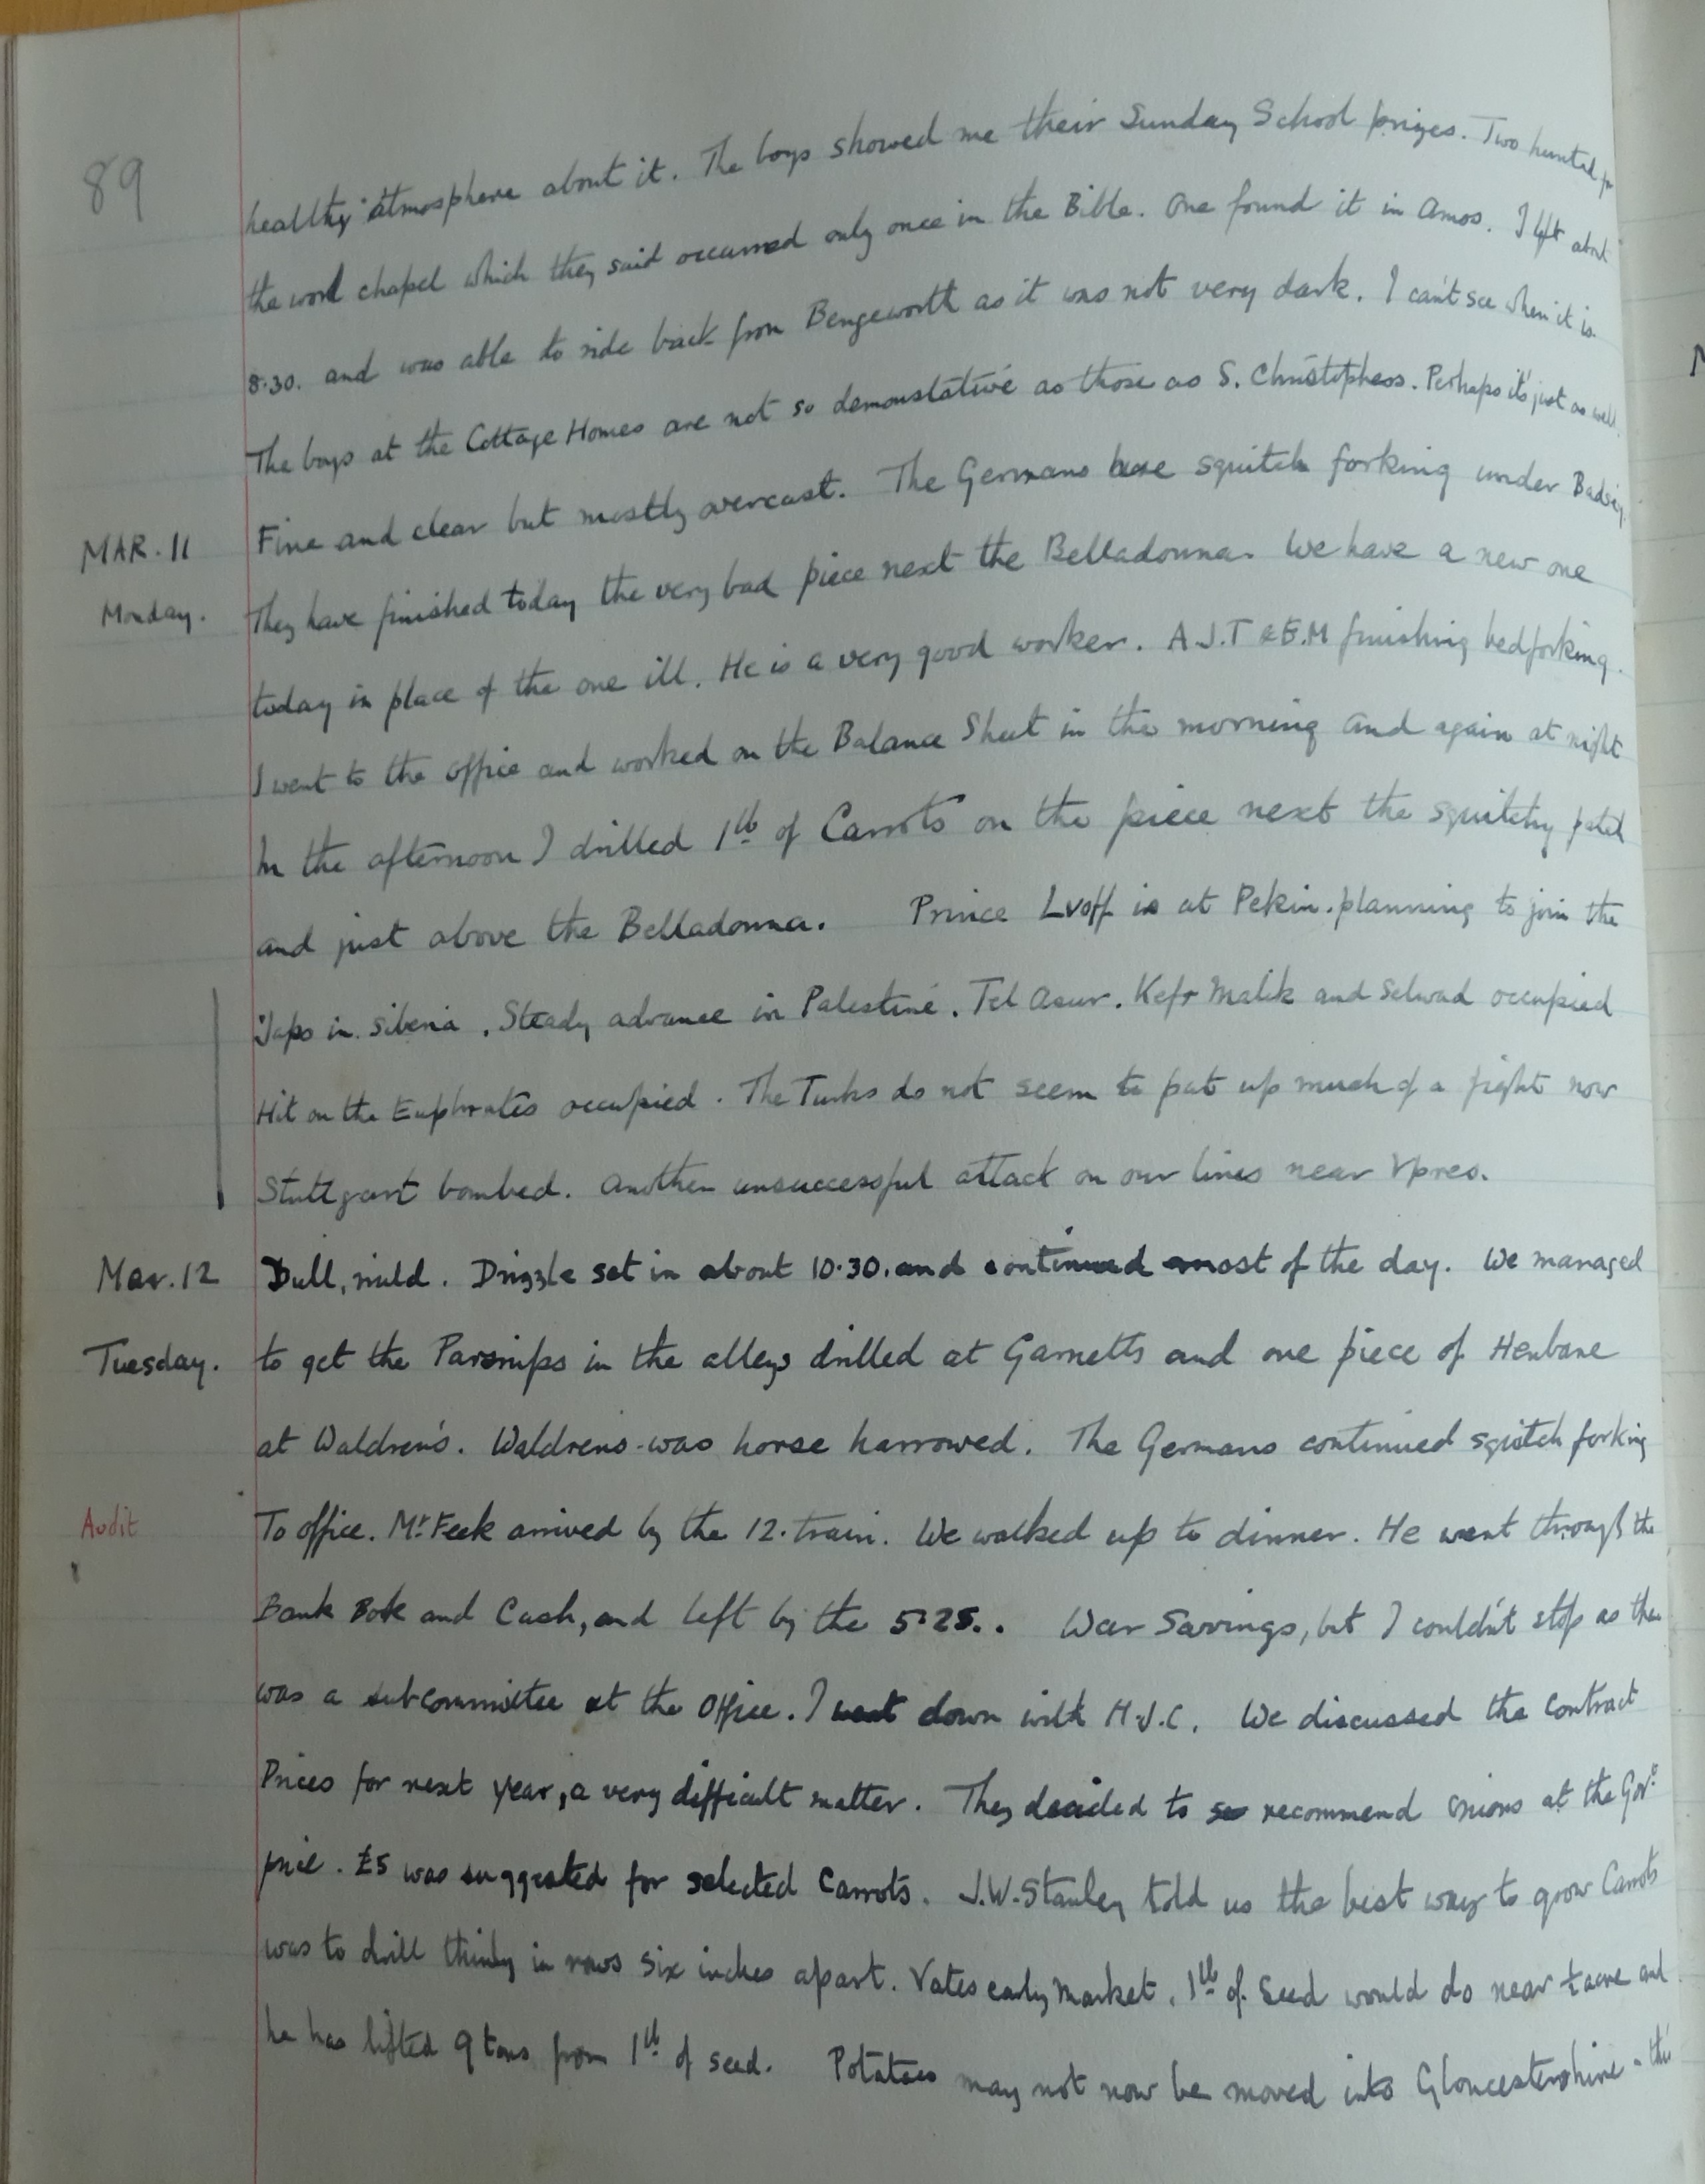 89
healthy atmosphere about it. The boys showed me their Sunday School prizes. Two hunted for
the word chapel which they said occurred only once in the Bible. One found it in Amos. I left about
8.30. and was able to ride back from Bengeworth as it was not very dark. I can't see when it is.
The boys at the Cottage Homes are not so demonstative as those as S. Christophers. Perhaps it's just as well.
MAR. 11 Fine and clear but mostly overcast. The Germans squitch forking under Badsey.
Monday. They have finished today the very bad piece next the Belladonna. We have a new one
today in place of the one ill. He is a very good worker. A.J.T & E.M finishing bedforking.
I went to the office and worked on the Balance Sheet in the morning and again at night
In the afternoon I drilled 1lb of Carrots on the piece next the squitchy patch
and just above the Belladonna. Prince Lvoff is at Pekin. planning to join the
Japs in Siberia. Steady advance in Palestine. Tel Asur. Kefr Malik and Selwad occupied
Hit on the Euphrates occupied. The Turks do not seem to put up much of a fight now
Stuttgart bombed. Another unsuccessful attack on our lines near Ypres.
Mar. 12 Dull, mild. Drizzle set in about 10.30. and continued most of the day. We managed
Tuesday. to get the Parsnips in the alleys drilled at Garnetts and one piece of Henbane
at Waldren's. Waldrens was horse harrowed. The Germans continued squitch forking
Audit To office. Mr Feek arrived by the 12. train. We walked up to dinner. He went through the
Bank Book and Cash, and left by the 5.25.. War Savings, but I couldn't stop as there
was a subcommittee at the Office. I went down with H.J.C. We discussed the contract
Prices for next year, a very difficult matter. They decided to recommend onions at the Govt
price. £5 was suggested for selected Carrots. J.W. Stanley told us the best way to grow Carrots
was to drill thinly in rows six inches apart. Vates early Market. 1lb of Seed would do near ½ acre and
he has lifted 9 tons from 1lb of seed. Potatoes may not now be moved into Gloucestershire - this